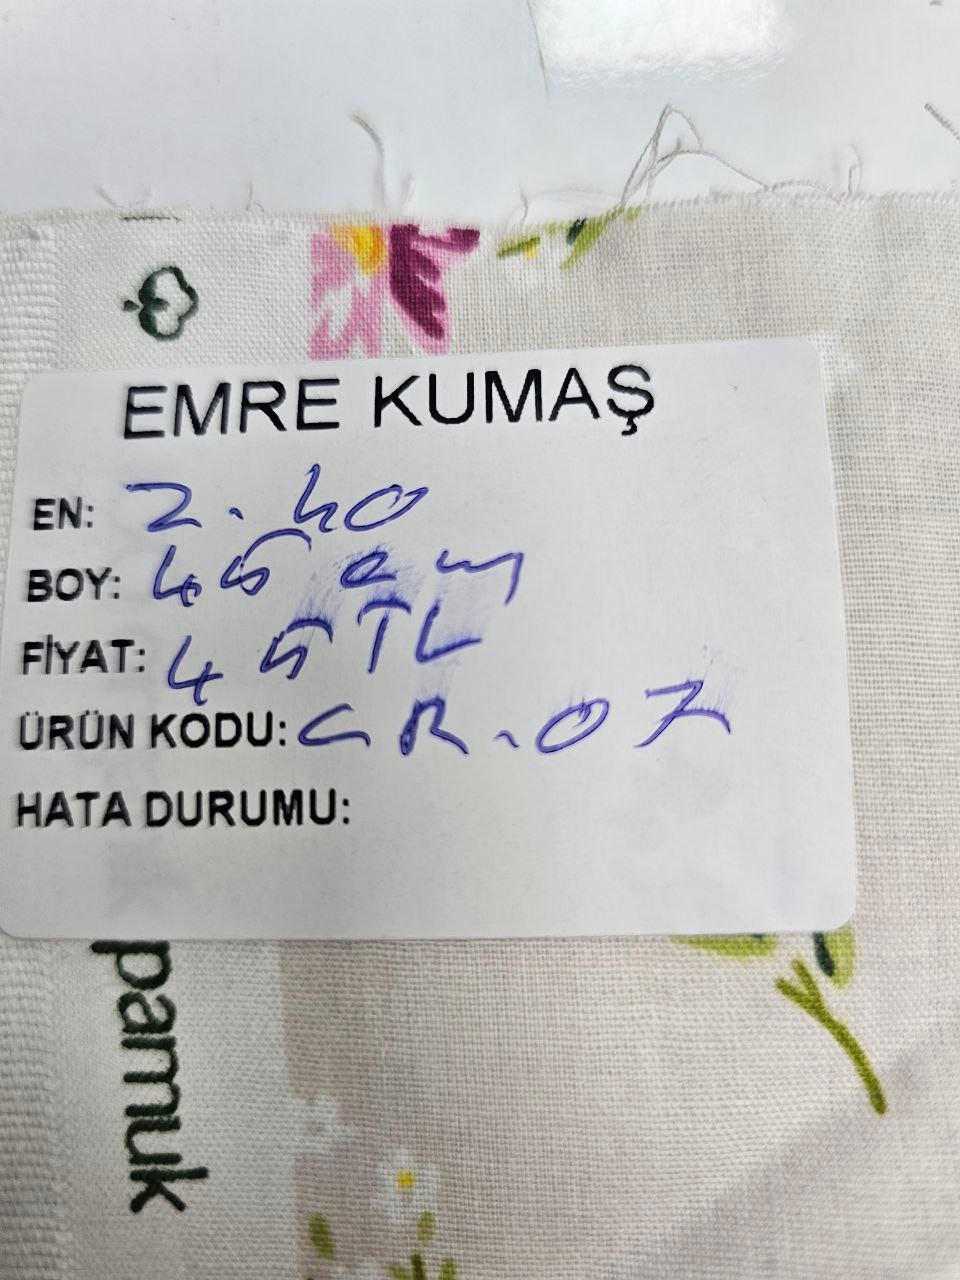 EMRE KUMAŞ
EN: 2.40
BOY: 45 cm
FİYAT: 45 TL
ÜRÜN KODU: CR.07
HATA DURUMU:
pamuk